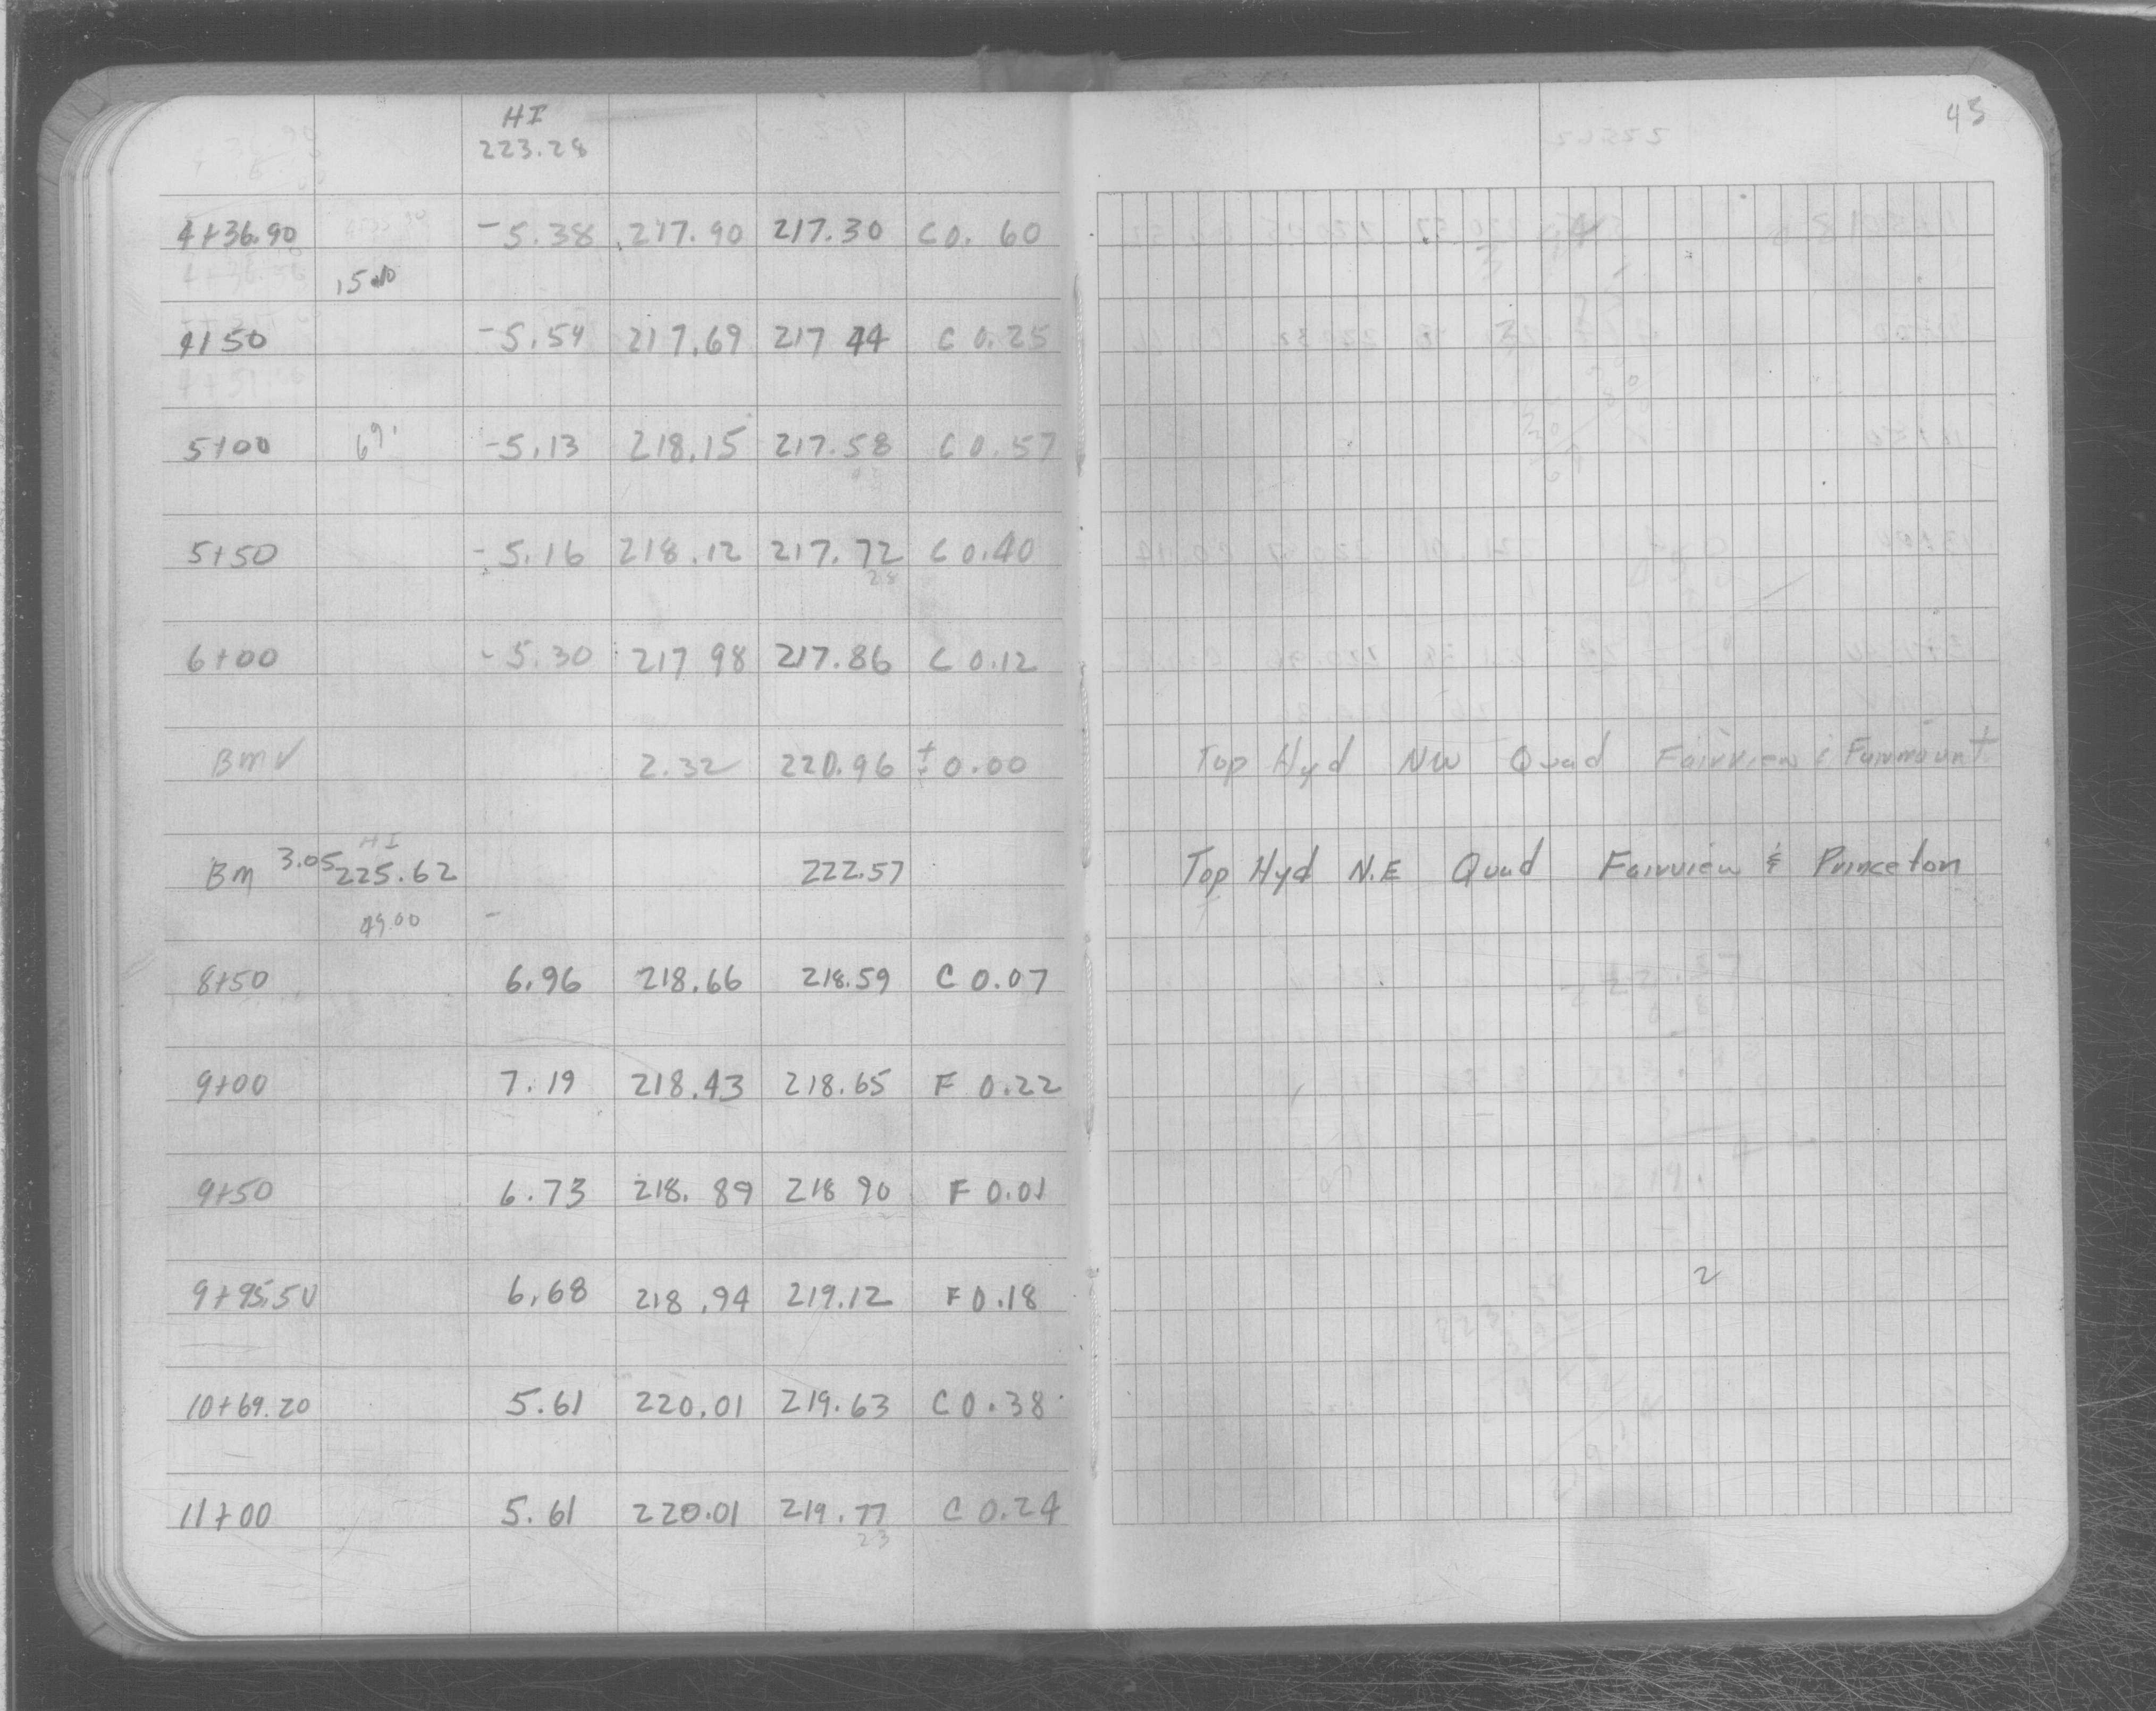 45
HI
223.28
4+36.90 -5.38 217.90 217.30 C 0.60
4+50 -5.54 217.69 217 44 C 0.25
5+00 69' -5.13 218.15 217.58 C 0.57
5+50 -5.16 218.12 217.72 C 0.40
28
6+00 -5.30 217 98 217.86 C 0.12
BM √ 2.32 220.96 ± 0.00 Top Hyd NW Quad Fairview & Fairmount
HI
BM 3.05 225.62 222.57 Top Hyd N.E Quad Fairview & Princeton
49.00 -
8+50 6.96 218.66 218.59 C 0.07
9+00 7.19 218.43 218.65 F 0.22
9+50 6.73 218.89 218 90 F 0.01
2
9+95.50 6.68 218.94 219.12 F 0.18
10+69.20 5.61 220.01 219.63 C 0.38
11+00 5.61 220.01 219.77 C 0.24
23